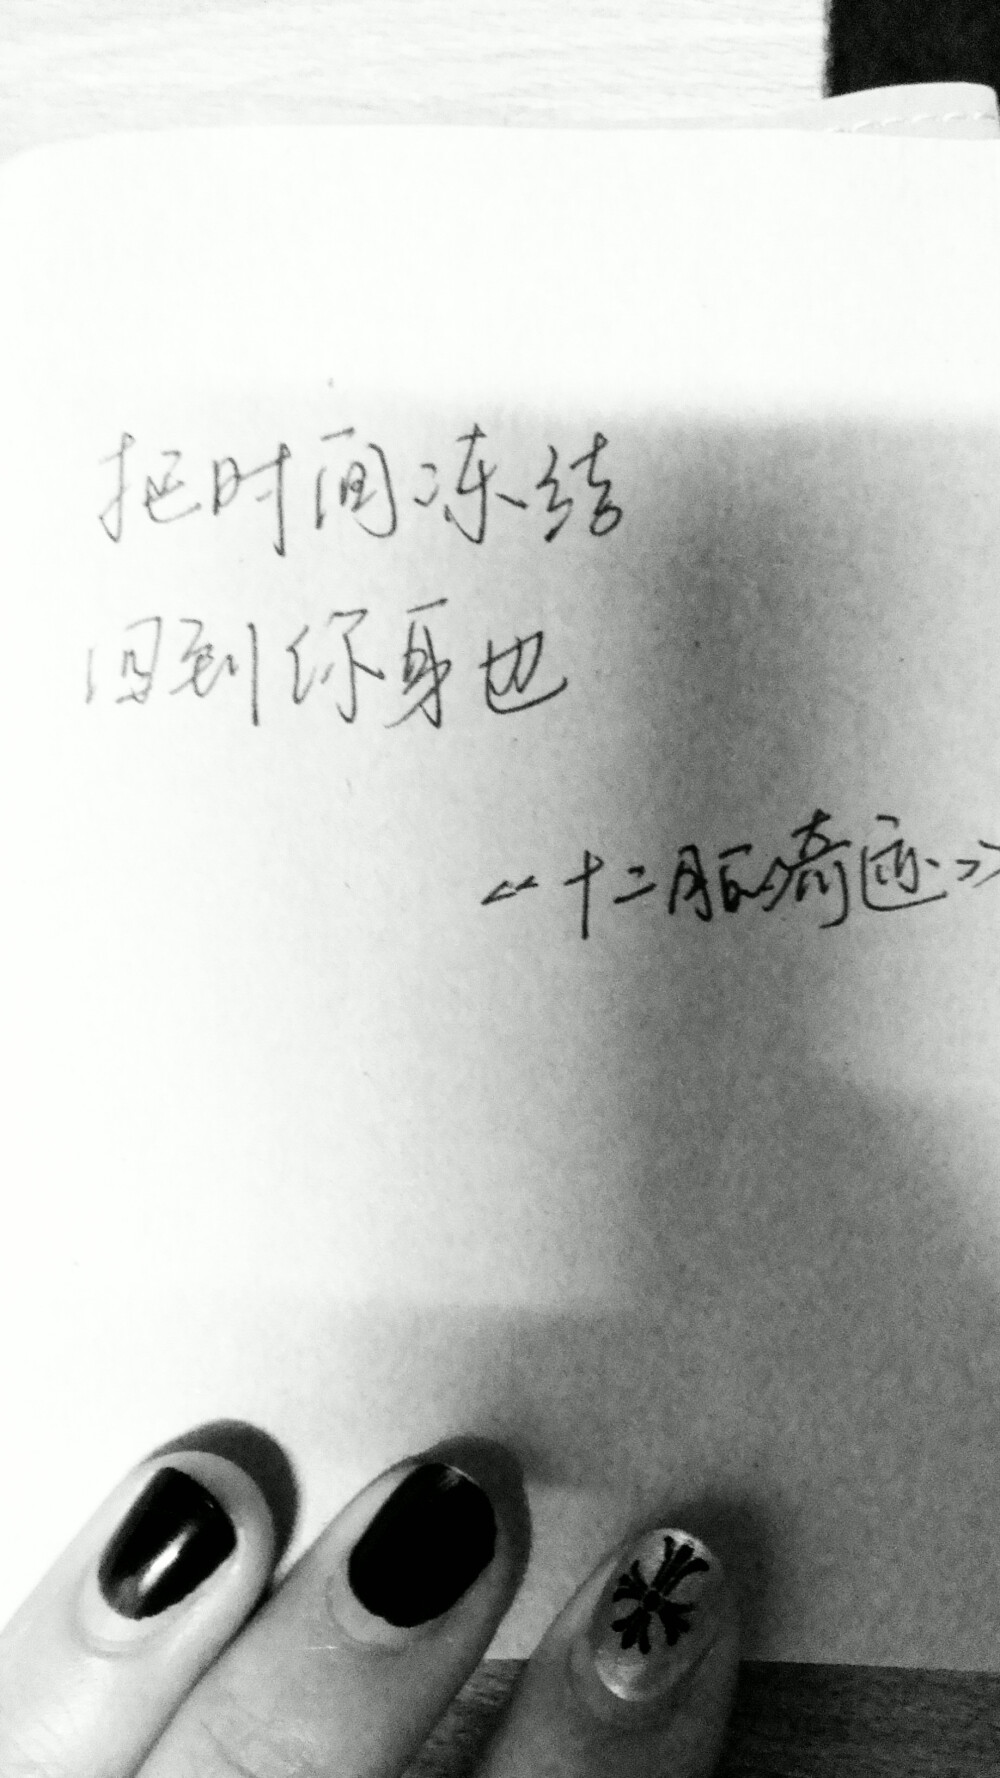 把时间冻结
回到你身也
《十二月的奇迹》